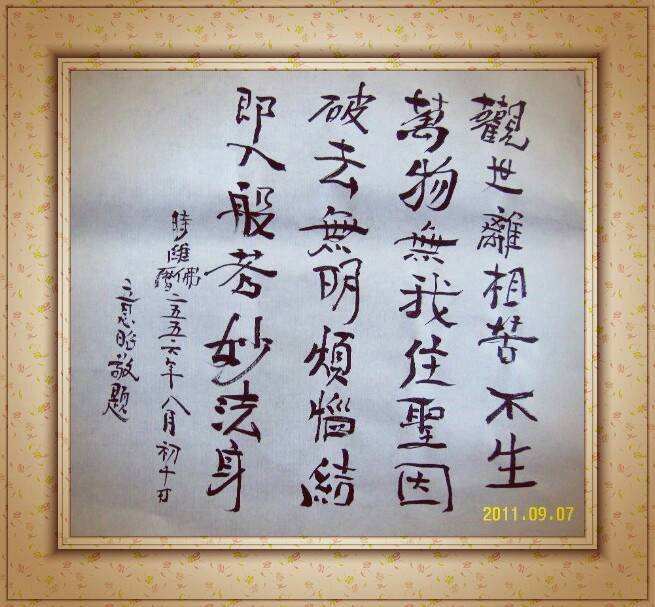 觀世離相苦不生
萬物無我住聖因
破去無明煩惱結
即入般若妙法身
時維佛曆二五五六年八月初十日
敬題
2011.09.07